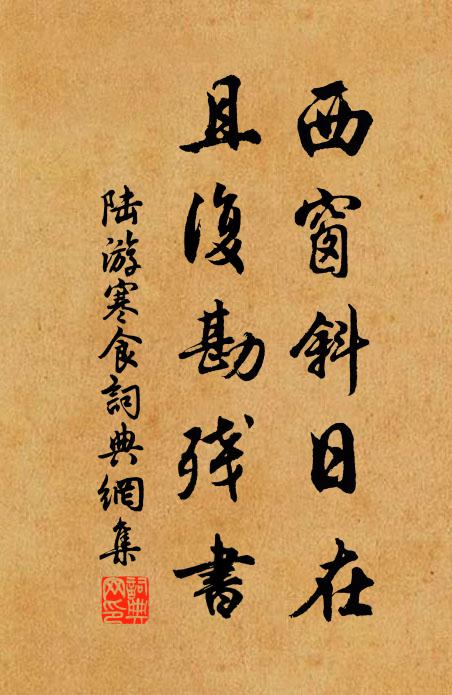 西窗斜日在
且復勘残書
陆游寒食詞典網集
詞典网印